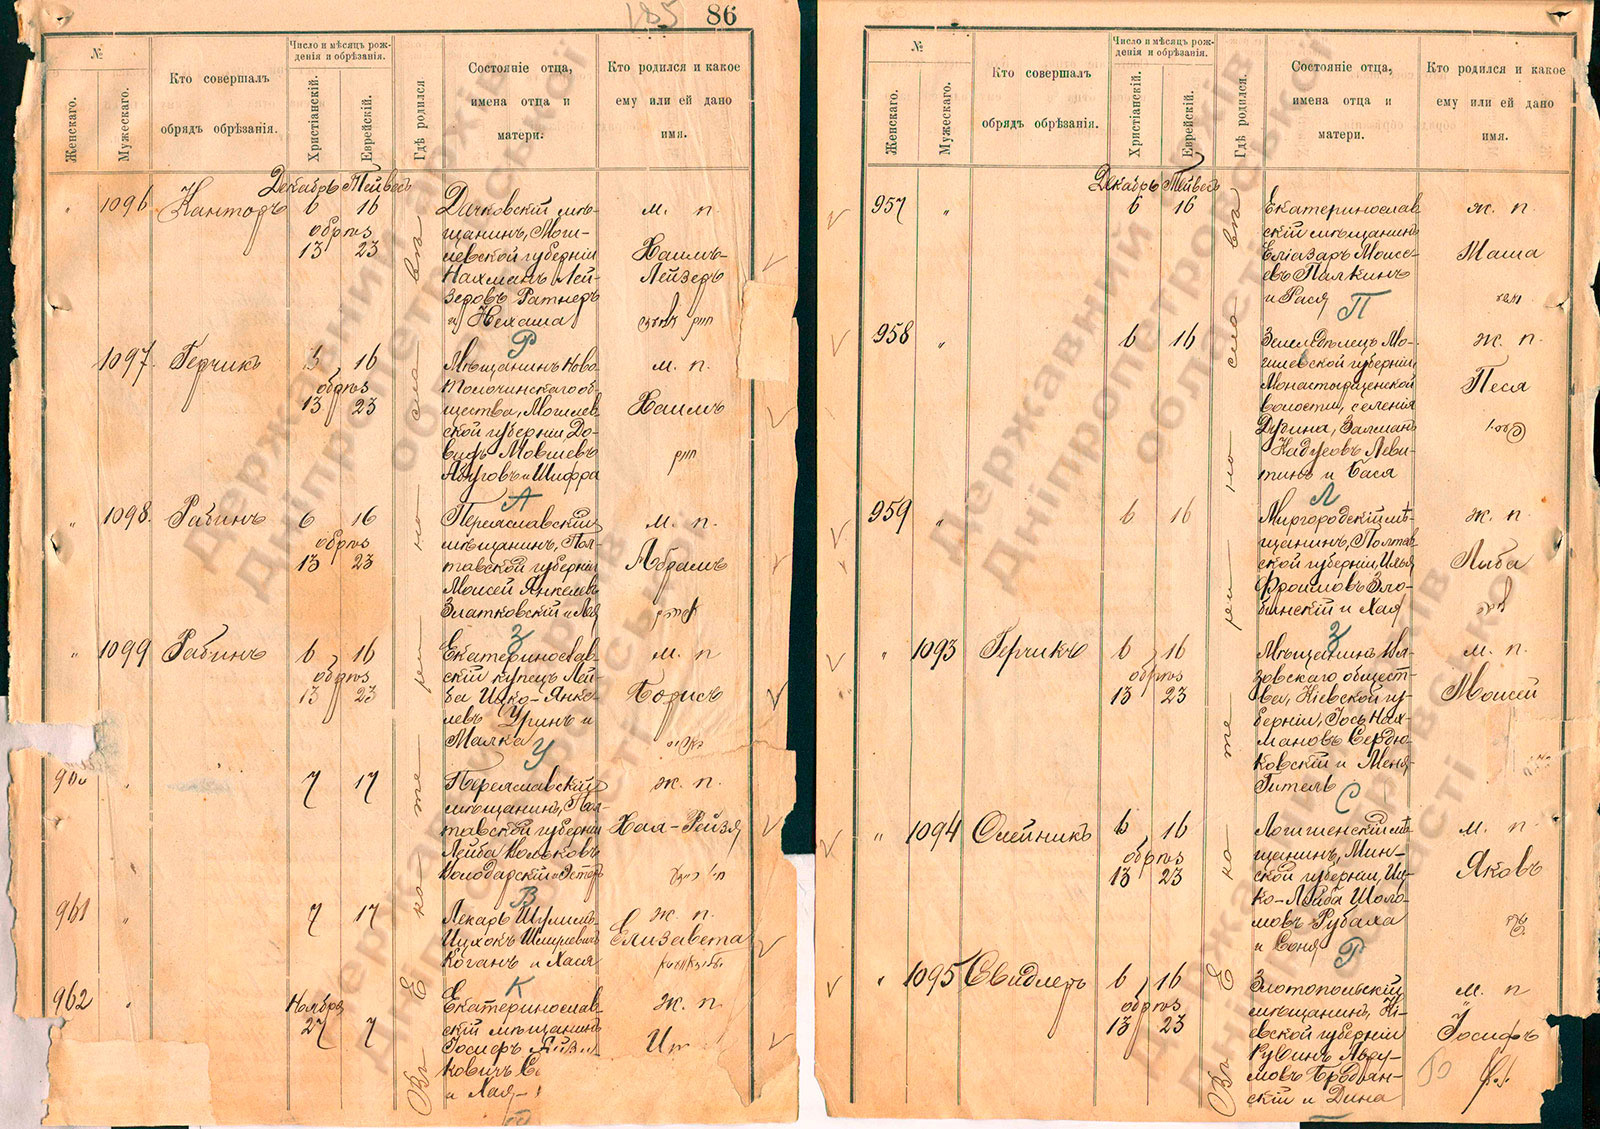 185 86
№
Женскаго.
Мужескаго.
Кто совершалъ
обрядъ обрѣзанія.
Число и мѣсяцъ рож-
денія и обрѣзанія.
Христіанскій.
Еврейскій.
Гдѣ родился
Состояніе отца,
имена отца и
матери.
Кто родился и какое
ему или ей дано
имя.
Декабрь Тейвесъ
Въ Екатеринославѣ
1096 Канторъ 6 16
обрѣз
13 23
Дачковскій мѣ-
щанинъ, Моги-
левской губерніи
Нахманъ Лей-
зеровъ Ратнеръ
и Нехама
м. п.
Хаимъ-
Лейзеръ
Р
1097 Герчикъ 6 16
обрѣз
13 23
Мѣщанинъ Ново
Толочинскаго об-
щества, Могилев
ской губерніи До-
видъ Мовшевъ
и Шифра
м. п.
Хаимъ
חיים
А
1098. Рабинъ 6 16
обрѣз
13 23
Переяславскій
мѣщанинъ, Пол-
тавской губерніи
Моисей Янкелевъ
Златковскій и Лея
м. п.
Абрамъ
З
1099 Рабинъ 6 16
обрѣз
13 23
Екатеринослав-
скій купецъ Лей-
ба Ицко-Янке-
левъ Уринъ и
Малка
м. п
Борисъ
У
960 7 17
Переяславскій
мѣщанинъ, Пол-
тавской губерніи
Лейба Вольковъ
Володарскій и Эстеръ
ж. п.
Хая-Рейзя
В
961 7 17
Лекарь Шулимъ-
Ицхокъ Шмулевичъ
Коганъ и Хася
ж. п.
Елизавета
К
962 Ноября
27 7
Екатеринослав-
скій мѣщанинъ
Іосифъ
ковичъ
и Хая
ж. п
№
Женскаго.
Мужескаго.
Кто совершалъ
обрядъ обрѣзанія.
Число и мѣсяцъ рож-
денія и обрѣзанія.
Христіанскій.
Еврейскій.
Гдѣ родился
Состояніе отца,
имена отца и
матери.
Кто родился и какое
ему или ей дано
имя.
Декабрь Тейвесъ
Въ Екатеринославѣ
957 6 16
Екатеринослав
скій мѣщанинъ
Еліазаръ Моисе-
евъ Палкинъ
и Рася
ж. п.
Маша
П
958 6 16
Земледѣлецъ Мо-
гилевской губерніи,
Монастырщенской
волости, селенія
Дудина, Залманъ
Левитинъ и Бася
ж. п.
Песя
Л
959 6 16
Миргородскій мѣ-
щанинъ, Полтав
ской губерніи, Илья
Фроимовъ Зло-
бинскій и Хая
ж. п.
Лыба
З
1093 Герчикъ 6 16
обрѣз
13 23
Мѣщанинъ
зовскаго общест-
ва, Кіевской гу-
берніи, Іось Нах-
мановъ Сердю-
ковскій и Меня-
Гитель
м. п
Моисей
С
1094 Олейникъ 6 16
обрѣз
13 23
Логишенскій мѣ-
щанинъ, Мин-
ской губерніи, Иц-
ко-Лейба Шоло-
мовъ Рубаха
и Соня
м. п
Яковъ
Р
1095 Свидлеръ 6 16
обрѣз
13 23
Златопольскій
мѣщанинъ, Кі-
евской губерніи
Рувинъ Авру-
мовъ Бродян-
скій и Дина
м. п
Іосифъ
Державний архів
Дніпропетровської
області